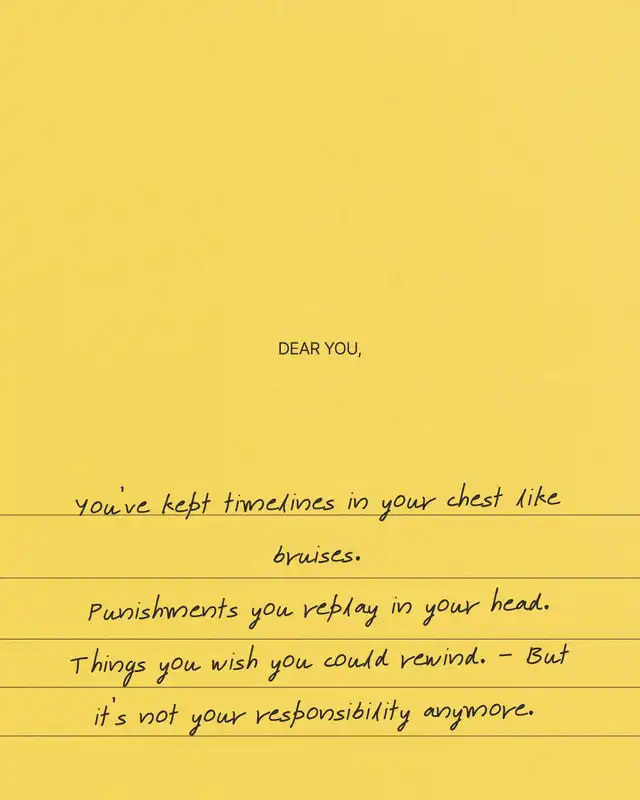 DEAR YOU,
You've kept timelines in your chest like
bruises.
Punishments you replay in your head.
Things you wish you could rewind. – But
it's not your responsibility anymore.